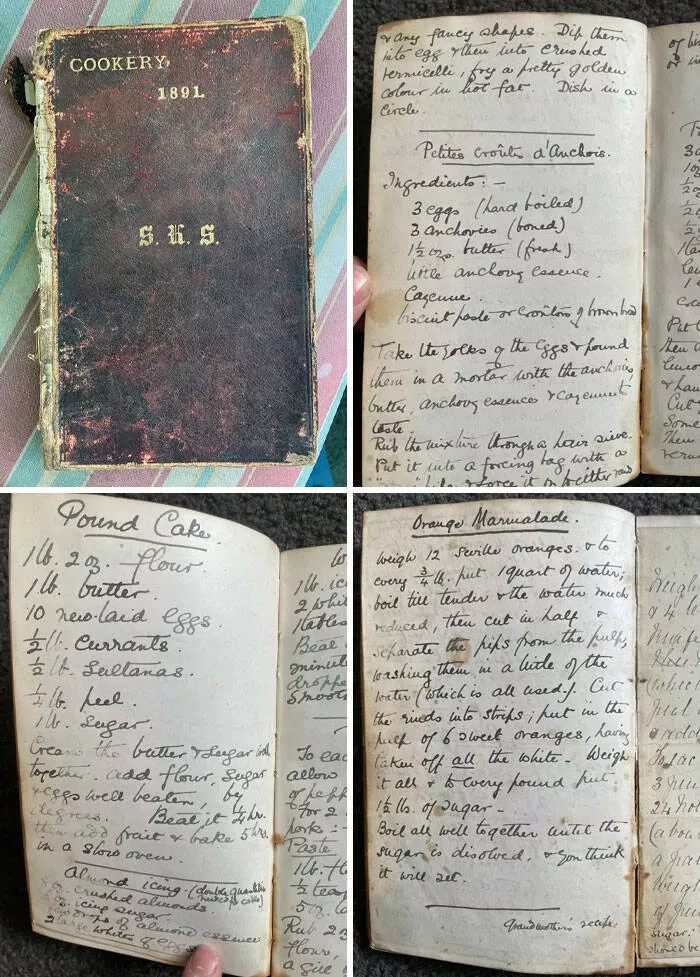 COOKERY
1891
S. K. S.
& any fancy shapes. Dip them
into egg & then into crushed
vermicelli, fry a pretty golden
colour in hot fat. Dish in a
circle.
Petites Croûtes d'Anchois.
Ingredients:—
3 eggs (hard boiled)
3 anchovies (boned)
1½ ozs. butter (fresh)
little anchovy essence.
Cayenne.
biscuit paste or croûtons of brown bread
Take the yolks of the eggs & pound
them in a mortar with the anchovies,
butter, anchovy essence & cayenne to
taste.
Rub the mixture through a hair sieve.
Put it into a forcing bag with a
& force it on to either
Put
then
Cut
Some
Them
Pound Cake.
1 lb. 2 oz. flour.
1 lb. butter.
10 new-laid eggs
½ lb. currants.
½ lb. Sultanas.
¼ lb. peel.
1 lb. Sugar.
Cream the butter & sugar well
together. Add flour, sugar
& eggs well beaten, by
degrees. Beal it ¼ hr.
then add fruit & bake 5 hrs.
in a slow oven.
Almond icing-(double quantities
for cake)
oz. crushed almonds
oz. icing sugar.
drops of almond essence
2 large whites of eggs
1 lb.
2
Beat
To each
allow
for 2
Paste
1 lb.
½
5 oz.
Rub 2
flour,
a
Orange Marmalade.
Weigh 12 Seville oranges. & to
every ¾ lb. put 1 quart of water;
boil till tender & the water much
reduced, then cut in half &
separate the pips from the pulp,
washing them in a little of the
water (which is all used). Cut
the rinds into strips; put in the
pulp of 6 sweet oranges, having
taken off all the white. Weigh
it all & to every pound put
1½ lbs. of sugar -
Boil all well together until the
sugar is disolved, & you think
it will set.
Grandmother's recipe.
Weigh
& 4 lb
3
24
sugar.
should be